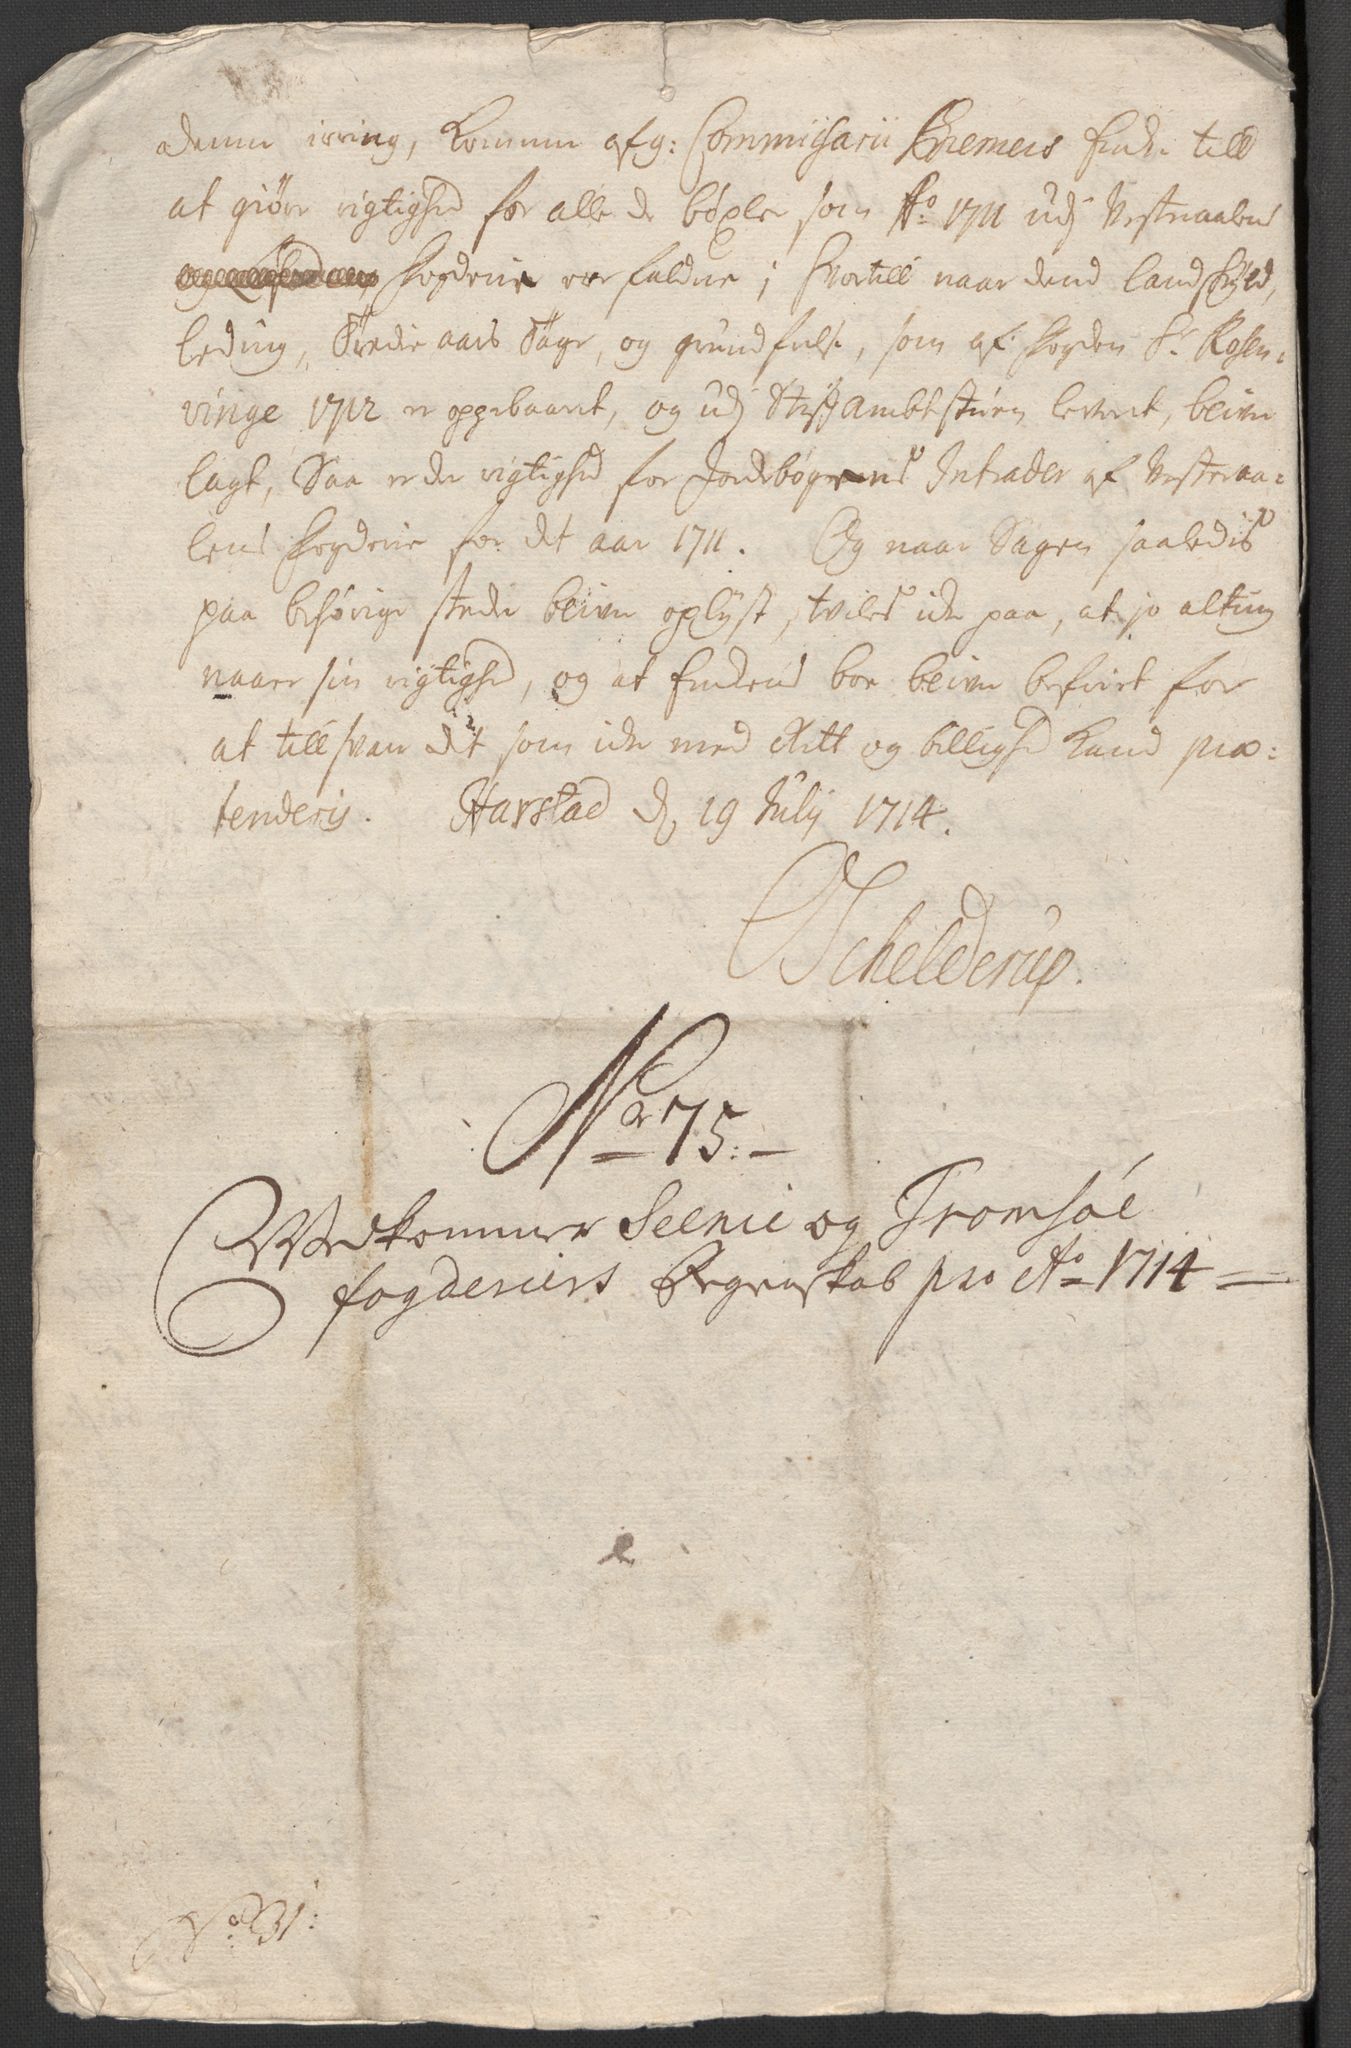 denne irring, kommer afg: Commissarii Kremers Encke till
at giøre rigtighed for alle de böxler som Aº 1711 udj Vesteraalens
fogderie ere faldne; hvortill naar dend landskyld,
leding, Tredie aars Tage, og grundleje, som af fogden Sr. Rosen,,
vinge 1712 er oppebaaret, og udj Stigtambtstuen leveret, blive
lagt, Saa er der rigtighed for Jordebogens Intrader af Vesteraa,,
lens fogderie for det aar 1711. Og naar Sagen saaledis
paa behörige steder bliver oplyst, tviles icke paa, at jo alting
naaer sin rigtighed, og at Enckend bør blive befriet for
at tillsvare det som icke med Rett og billighed kand præ:
tenderis. Harstad d. 19 Julij 1714.
Schelderup.
No 75:
Vedkommer Seenie og Tromsöe
fogderiers Regenskab pro Ao 1714
No 31: